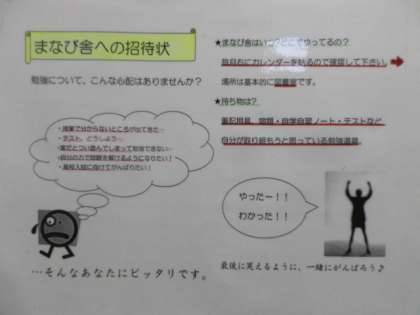 まなび舎への招待状
勉強について、こんな心配はありませんか？
・授業で分からないところが出てきた…
・テスト、どうしよう…
・家だとつい遊んでしまって勉強できない…
・自分の力で問題を解けるようになりたい！
・高校入試に向けてがんばりたい！
…そんなあなたにピッタリです。
★まなび舎はいつどこでやってるの？
毎月右にカレンダーを貼るので確認して下さい。
場所は基本的に図書室です。
★持ち物は？
筆記用具、宿題・自学自習ノート・テストなど
自分が取り組もうと思っている勉強道具。
やったー！！
わかった！！
最後に笑えるように、一緒にがんばろう♪